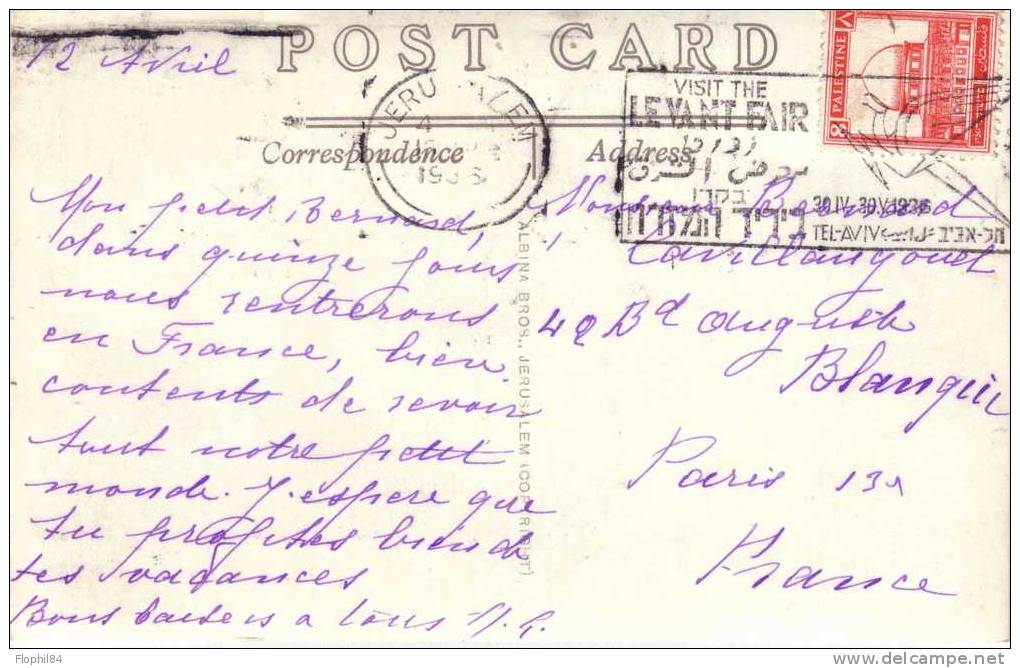 POST CARD
12 Avril
JERUSALEM
1936
VISIT THE
LEVANT FAIR
معرض الشرق
יריד המזרח
30 IV-30 V 1936
TEL-AVIV תל-אביב
PALESTINE
8
Correspondence
Address
Mon petit Bernard,
dans quinze jours
nous rentrerons
en France, bien
contents de revoir
tout notre petit
monde. J'espère que
tu profites bien de
tes vacances
Bons baisers à tous
Bernard
42 Bd Auguste
Blanqui
Paris 13
France
ALBINA BROS., JERUSALEM (COPYRIGHT)
Flophil84
delcampe.net